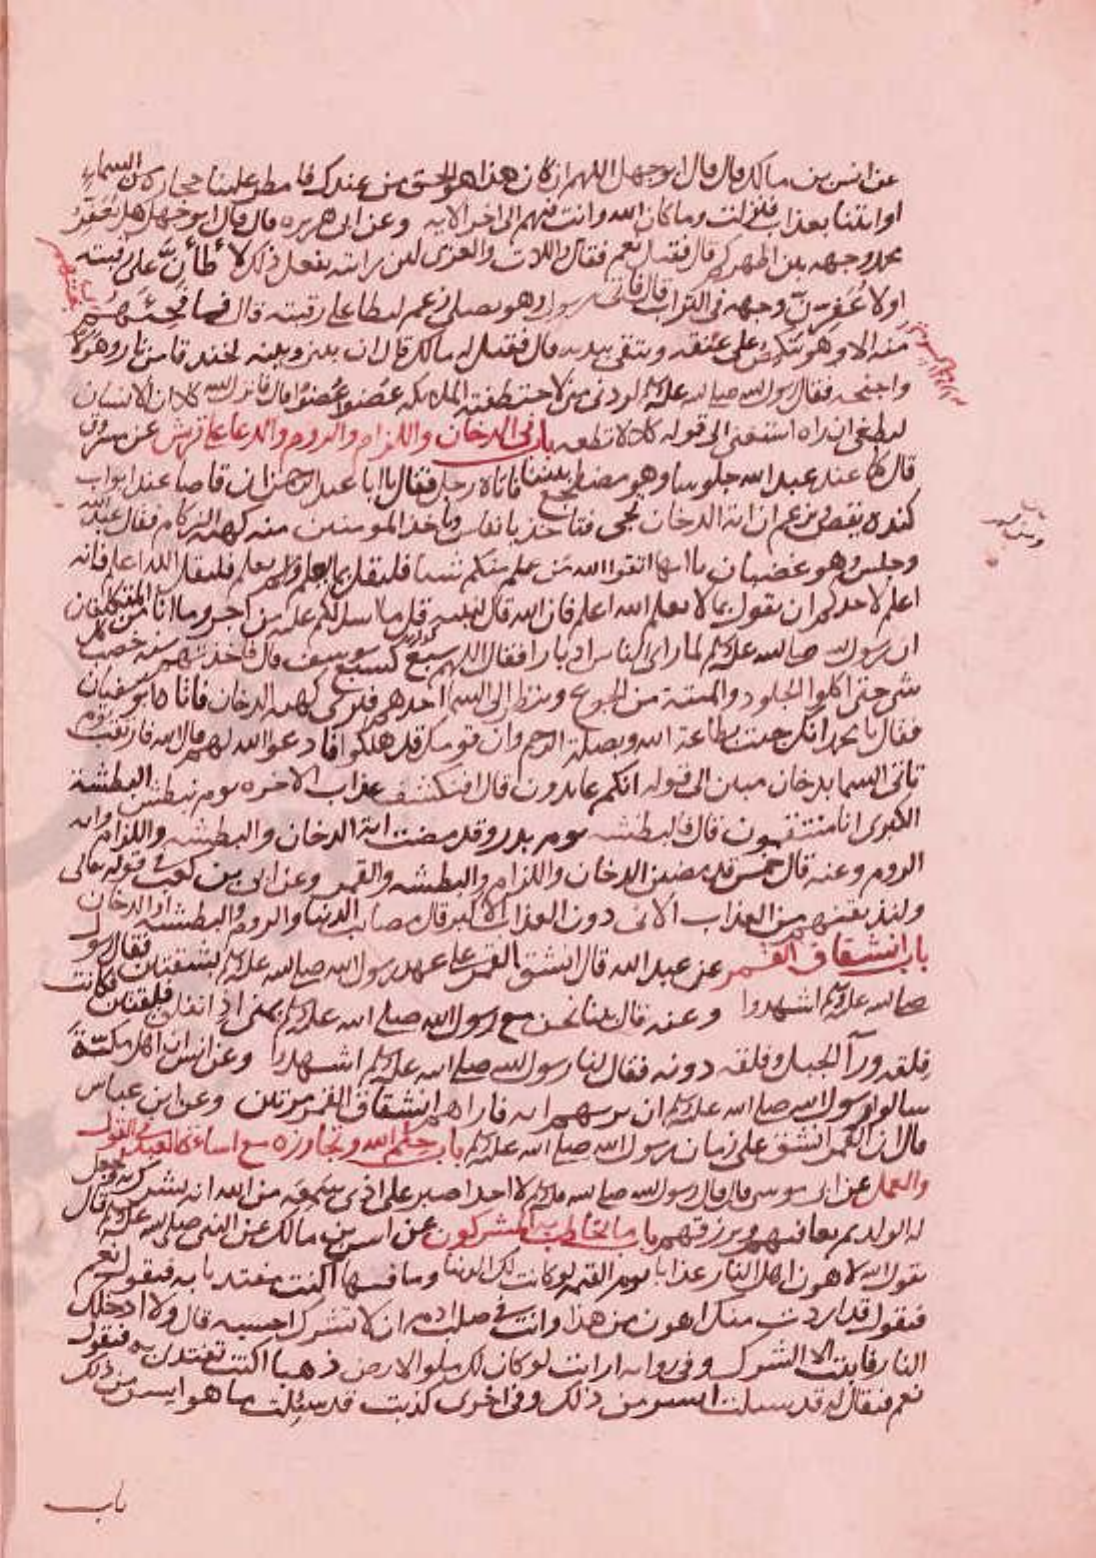 عن انس بن مالك قال قال ابو جهل اللهم ان كان هذا هو الحق من عندك فامطر علينا حجارة من السماء
او ائتنا بعذاب فنزلت وما كان الله وانت فيهم الى اخر الايه وعن ابى هريره قال قال ابو جهل هل يُعَفِّرُ
محمد وجهه بين اظهركم قال فقيل نعم فقال واللات والعزى لئن رايته يفعل ذلك لأطأنَّ على رقبته
او لاعَفِّرنّ وجهه فى التراب قال فاتى رسول الله وهو يصلى زعم ليطا على رقبته قال فما فَجِئَهُم
منه الا وهو ينكِصُ على عقبه ويتقى بيديه قال فقيل له مالك قال ان بينى وبينه لخندقا من نار وهَوْلًا
واجنحه فقال رسول الله صلى الله عليه وسلم لو دنى منى لاختطفته الملائكه عُضوًا عُضوًا قال فانزل الله كلا ان الانسان
ليطغى ان راه استغنى الى قوله كلا لا تطعه باب فى الدخان واللزام والروم والدعا على قريش عن مسروق
قال كنا عند عبد الله جلوسا وهو مضطجع بيننا فاتاه رجل فقال يا ابا عبد الرحمن ان قاصا عند ابواب
كنده يقص يزعم ان اية الدخان تجى فتاخذ بانفاس وياخذ المومنين منه كهيه الزكام فقال عبد الله
وجلس وهو غضبان يا ايها اتقوا الله من علم منكم شيا فليقل بما يعلم ومن لم يعلم فليقل الله اعلم فانه
اعلم لاحدكم ان يقول بما لا يعلم الله اعلم فان الله قال لنبيه قل ما اسئلكم عليه من اجر وما انا من المتكلفين
ان رسول الله صلى الله عليه وسلم لما راى الناس ادبارا فقال اللهم سبع كسبع يوسف قال فاخذتهم سنه حصت كل
شى حتى اكلوا الجلود والميتة من الجوع وينظر الى السما احدهم فيرى كهيه الدخان فاتاه ابو سفيان
فقال يا محمد انك جيت بطاعة الله وبصلة الرحم وان قومك قد هلكوا فادعوا الله لهم قال الله فارتقب يوم
تاتى السما بدخان مبين الى قوله انكم عايدون قال افيكشف عذاب الاخره يوم نبطش البطشة
الكبرى انا منتقمون قال فالبطشه يوم بدر وقد مضت اية الدخان والبطشه واللزام وايه
الروم وعنه قال خمس قد مضين الدخان واللزام والبطشه والقمر وعن ابى بن كعب فى قوله تعالى
ولنذيقنهم من العذاب الادنى دون العذاب الاكبر قال مصايب الدنيا والروم والبطشه او الدخان
باب انشقاق القمر عن عبد الله قال انشق القمر على عهد رسول الله صلى الله عليه وسلم بشقتين فقال رسول
صلى الله عليه وسلم اشهدوا وعنه قال بينا نحن مع رسول الله صلى الله عليه وسلم بمنى اذ انفلق فلقتين فكانت
فِلقه ورآ الجبل وفلقه دونه فقال لنا رسول الله صلى الله عليه وسلم اشهدوا وعن انس ان اهل مكّة
سالوا رسول الله صلى الله عليه وسلم ان يريهم ايه فاراهم انشقاق القمر مرتين وعن ابن عباس
قال ان القمر انشق على زمان رسول الله صلى الله عليه وسلم باب حلم الله وتجاوزه مع اساءة العبد فى القول
والعمل عن ابى موسى قال قال رسول الله صلى الله عليه وسلم لا احد اصبر على اذى يسمعه من الله انه يشرك به ويجعل
له الولد ثم يعافيهم ويرزقهم باب ما يخاطب به المشركون عن انس بن مالك عن النبى صلى الله عليه وسلم قال
يقول الله لاهون اهل النار عذابا يوم القيمه لو كانت لك الدنيا وما فيها اكنت مفتديا به فيقول نعم
فيقول قد اردت منك اهون من هذا وانت فى صلب ادم ان لا تشرك احسبه قال ولا ادخلك
النار فابيت الا الشرك وفى روايه ارايت لو كان لك ملو الارض ذهبا اكنت تفتدى به فيقول
نعم فيقال له قد سيلت ايسر من ذلك وفى اخرى كذبت قد سئِلت ما هو ايسر من ذلك
باب